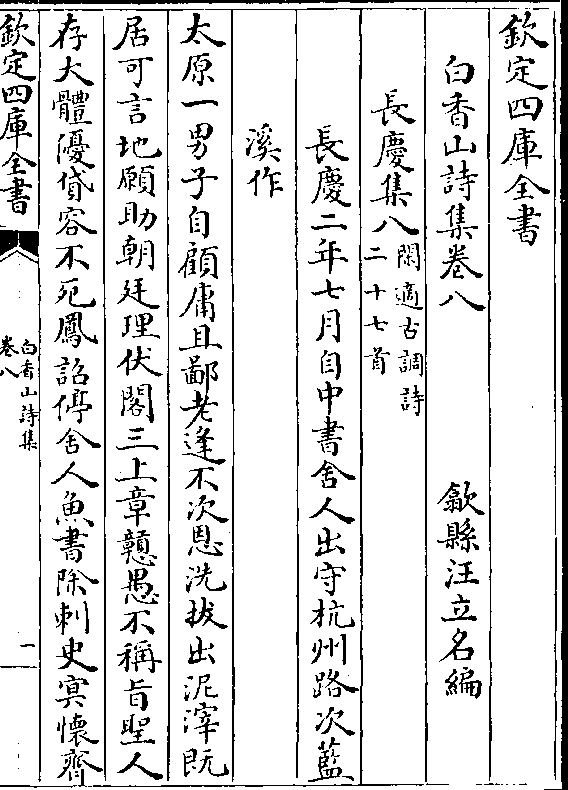 欽定四庫全書
白香山詩集卷八
歙縣汪立名編
長慶集八閑適古調詩
二十七首
長慶二年七月自中書舍人出守杭州路次藍
溪作
太原一男子自顧庸且鄙老逢不次恩洗拔出泥滓既
居可言地願助朝廷理伏閤三上章戇愚不稱旨聖人
存大體優貸容不死鳳詔停舍人魚書除刺史㝠懷齊
欽定四庫全書
白香山詩集
卷八
一